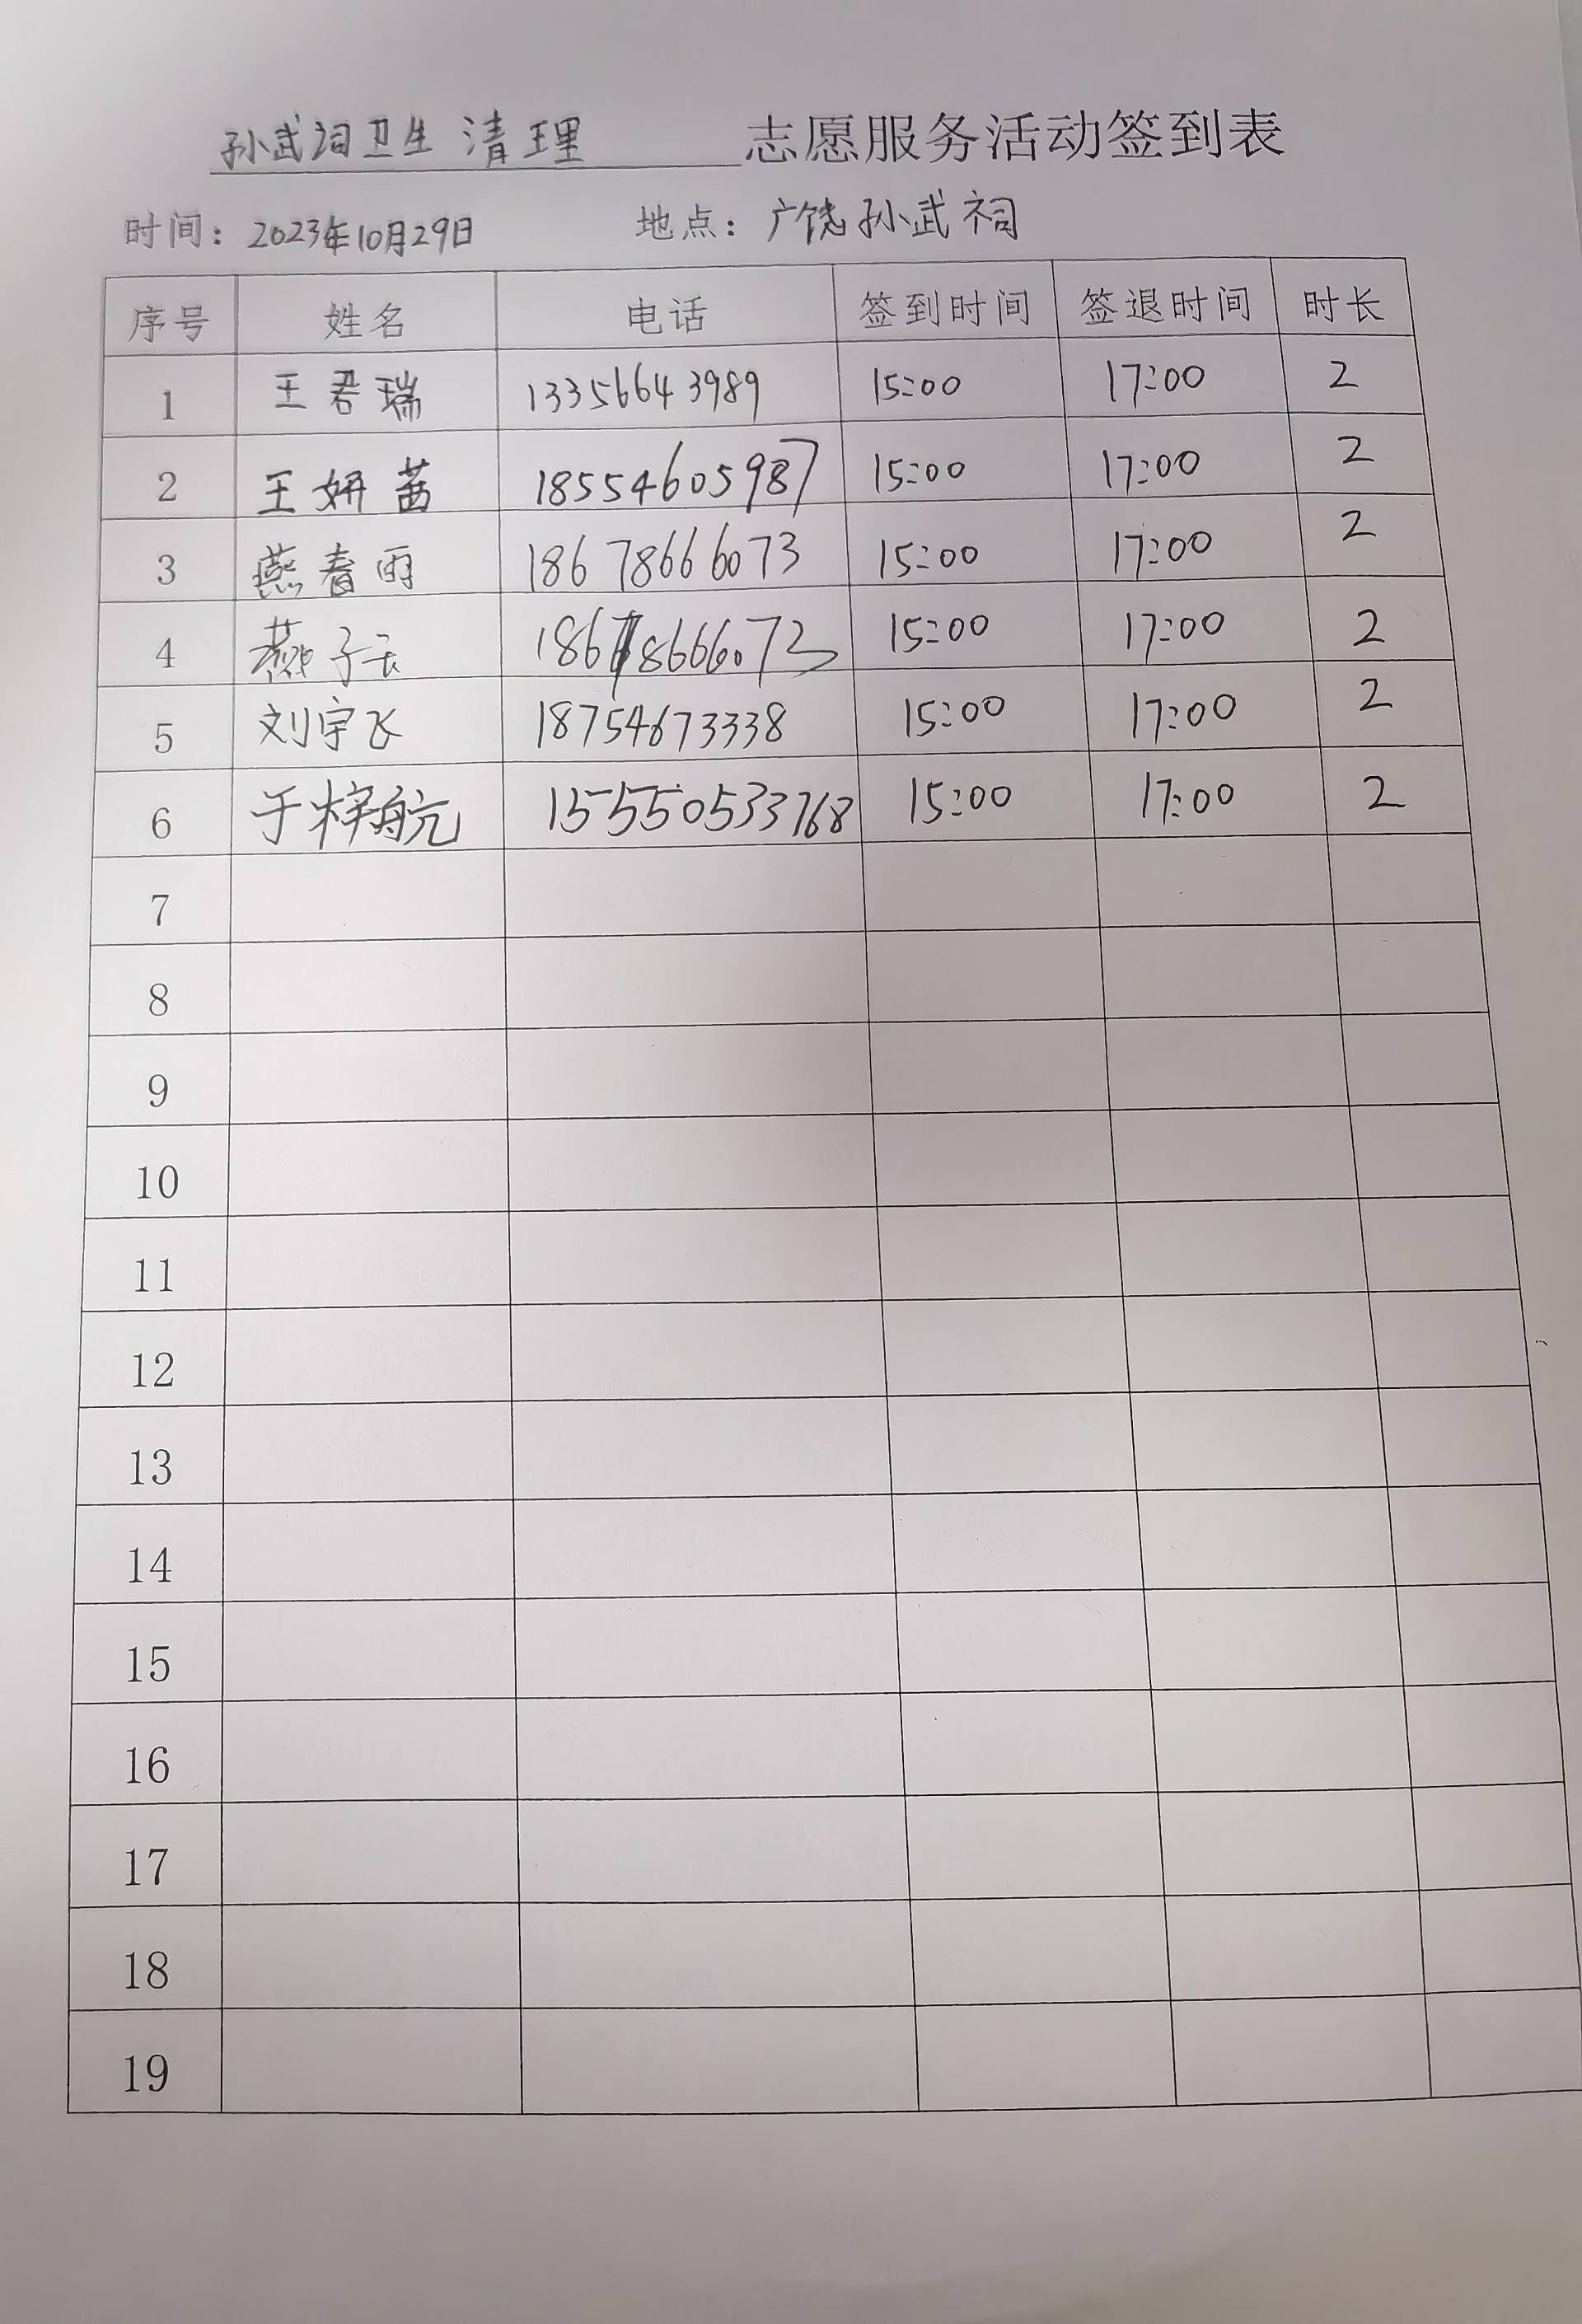 孙武祠卫生清理 志愿服务活动签到表
时间：2023年10月29日 地点：广饶孙武祠
序号 姓名 电话 签到时间 签退时间 时长
1 王君瑞 13356643989 15:00 17:00 2
2 王妍茜 18554605987 15:00 17:00 2
3 燕春丽 18678666073 15:00 17:00 2
4 燕子云 18678666073 15:00 17:00 2
5 刘宇飞 18754673338 15:00 17:00 2
6 于梓航 15550533768 15:00 17:00 2
7
8
9
10
11
12
13
14
15
16
17
18
19